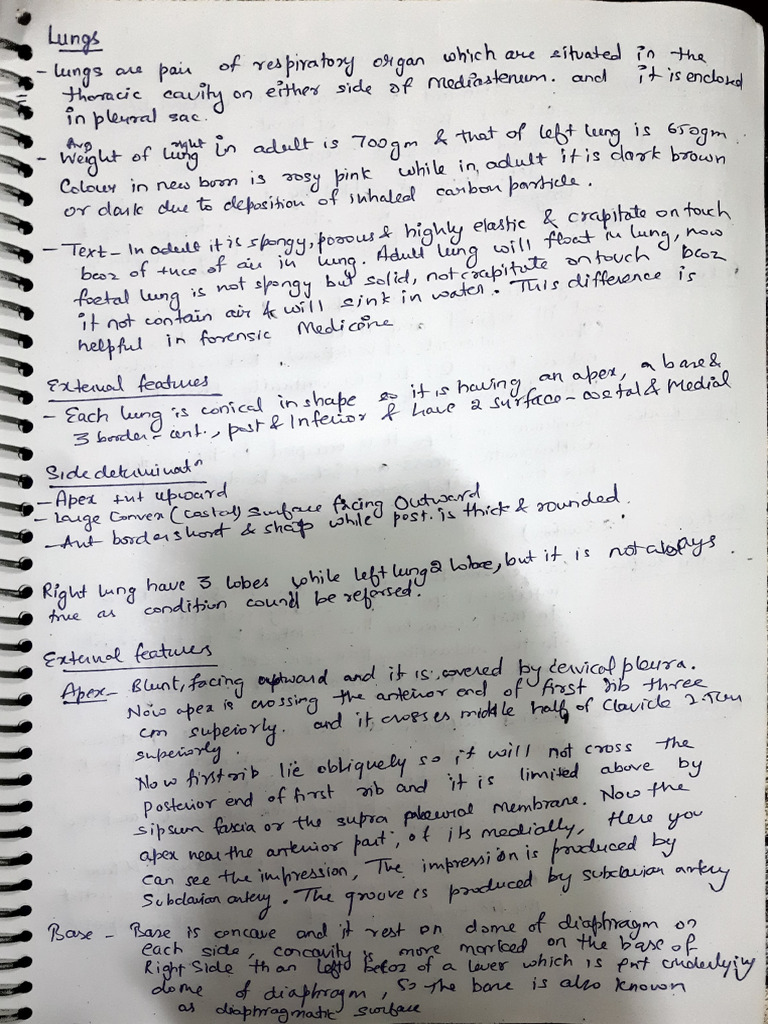 Lungs
- Lungs are pair of respiratory organ which are situated in the
thoracic cavity on either side of Mediastenum. and it is enclosed
in pleural sac.
- Avg Weight of right lung in adult is 700gm & that of left lung is 650gm.
Colour in new born is rosy pink while in adult it is dark brown
or dark due to deposition of inhaled carbon particle.
- Text - In adult it is spongy, porous & highly elastic & crapitate on touch
bcoz of +nce of air in lung. Adult lung will float in lung, now
foetal lung is not spongy but solid, not crapitate on touch bcoz
it not contain air & will sink in water. This difference is
helpful in forensic Medicine
External features
- Each lung is conical in shape so it is having an apex, a base &
3 border - ant., post & Inferior & have 2 surface - costal & Medial
Side determinatn
- Apex +nt upward
- Large Convex (costal) surface facing Outward
- Ant border short & sharp while post. is thick & rounded.
Right lung have 3 lobes while left lung 2 lobe, but it is not always
true as condition could be refarsed.
External features
Apex - Blunt, facing upward and it is covered by cervical pleura.
Now apex is crossing the anterior end of first rib three
cm superiorly. and it crosses middle half of Clavicle 2.5cm
superiorly.
Now first rib lie obliquely so it will not cross the
posterior end of first rib and it is limited above by
sipsum fascia or the supra pleural Membrane. Now the
apex near the anterior part, of its medially, Here you
can see the impression, The impression is produced by
Subclavian artery. The groove is produced by subclavian artery
Base - Base is concave and it rest on dome of diaphragm on
each side, concavity is more marked on the base of
Right Side than left becoz of a lever which is pnt underlying
dome of diaphragm, So the base is also known
as diaphragmatic surface